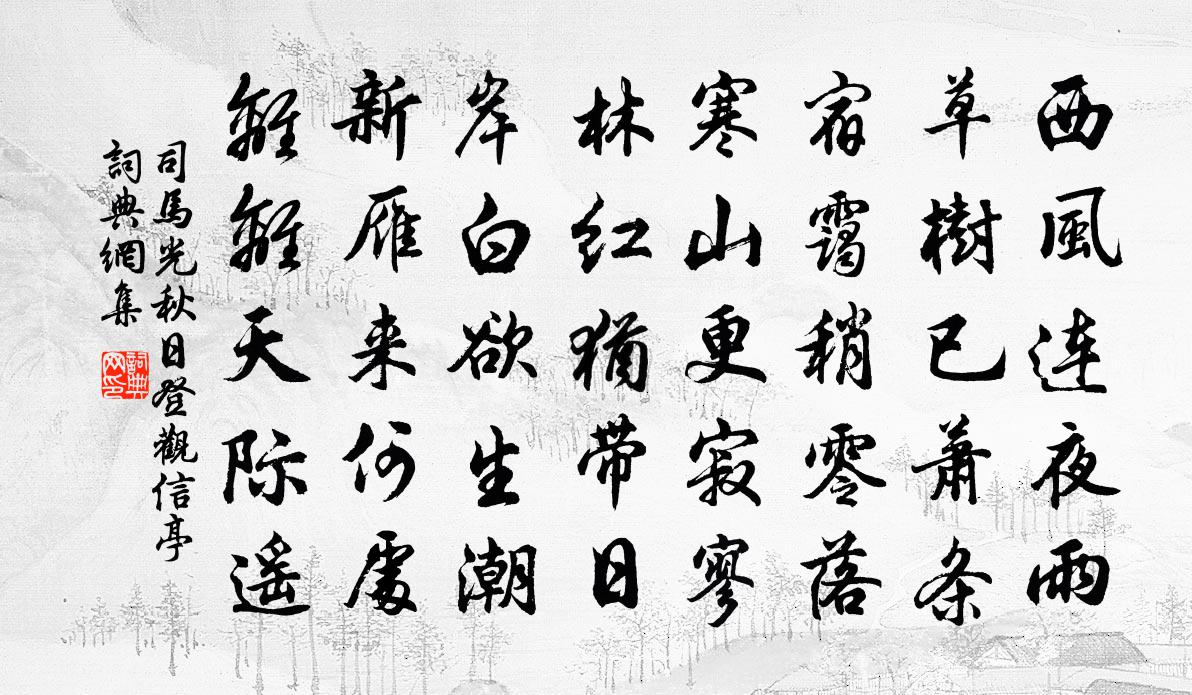 西風連夜雨
草樹已蕭条
宿靄稍零落
寒山更寂寥
林红猶带日
岸白欲生潮
新雁来何處
離離天际遥
司馬光秋日登觀信亭
詞典網集
詞典网印